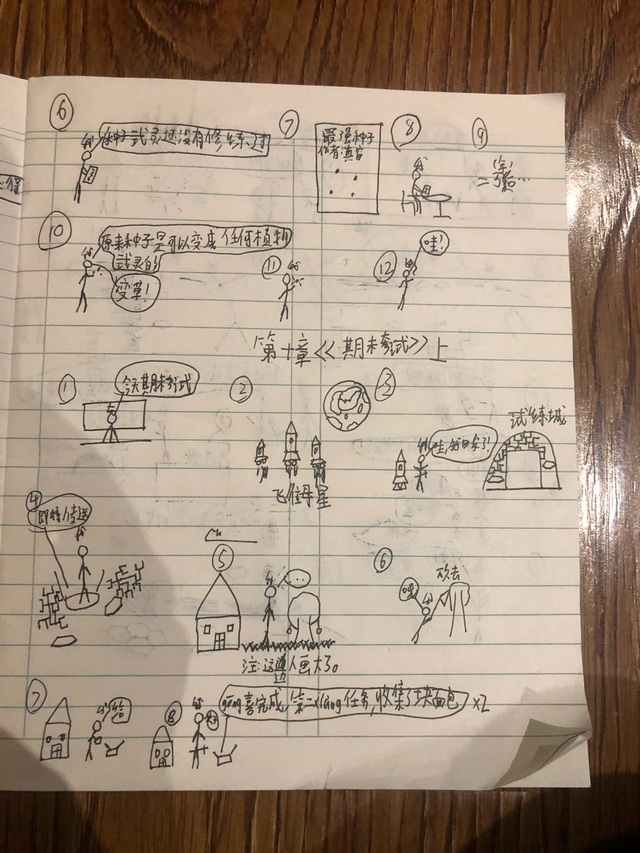 ⑥
种子武灵还没有修练过
⑦
最强种子
作者:真菩
⑧
⑨
⑩
原来种子是可以变成任何植物
武灵的
变草!
⑪
⑫
哇!
第十章<<期末考试>>上
①
今天期末考试
②
飞往母星
③
哇,我回来了!
试练城
④
即将传送
⑤
注:这边人画大了。
⑥
砍去
⑦
给
⑧
gōng喜完成,第二xiàng任务,收集了块面包 x2